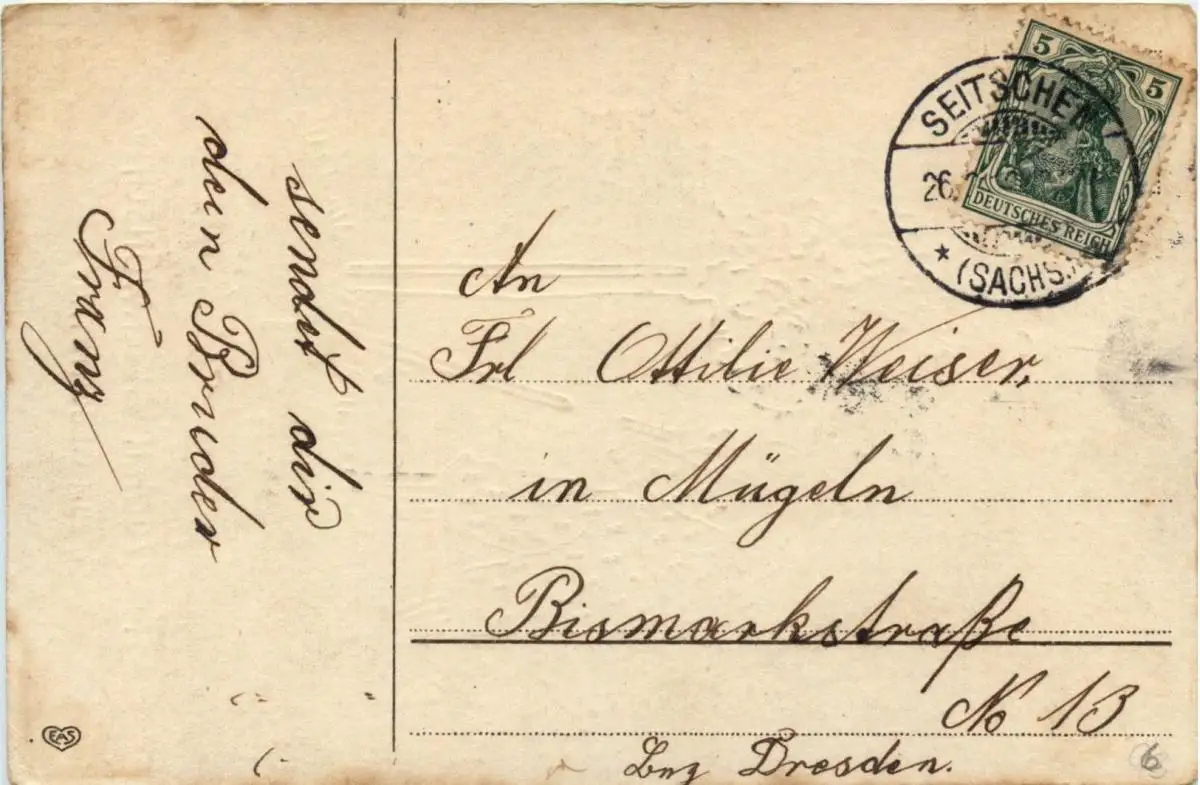 sendet dir
dein Bruder
Franz
5 5
DEUTSCHES REICH
SEITSCHEN
26.
* (SACHS.)
An
Frl Ottilie Weiser,
in Mügeln
Bismarkstraße
No 13
Dresden.
EAS
6